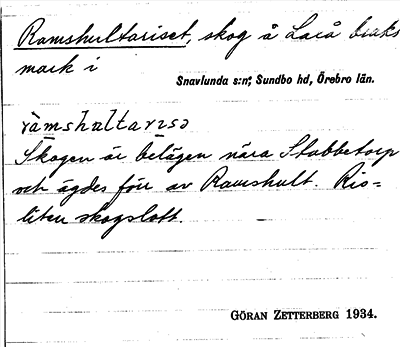 Ramshultariset, skog å Laxå bruks
mark i
Snavlunda s:n, Sundbo hd, Örebro län.
ràmshultarisə
Skogen är belägen nära Stubbetorp
och ägdes förr av Ramshult. Ris=
liten skogslott.
GÖRAN ZETTERBERG 1934.